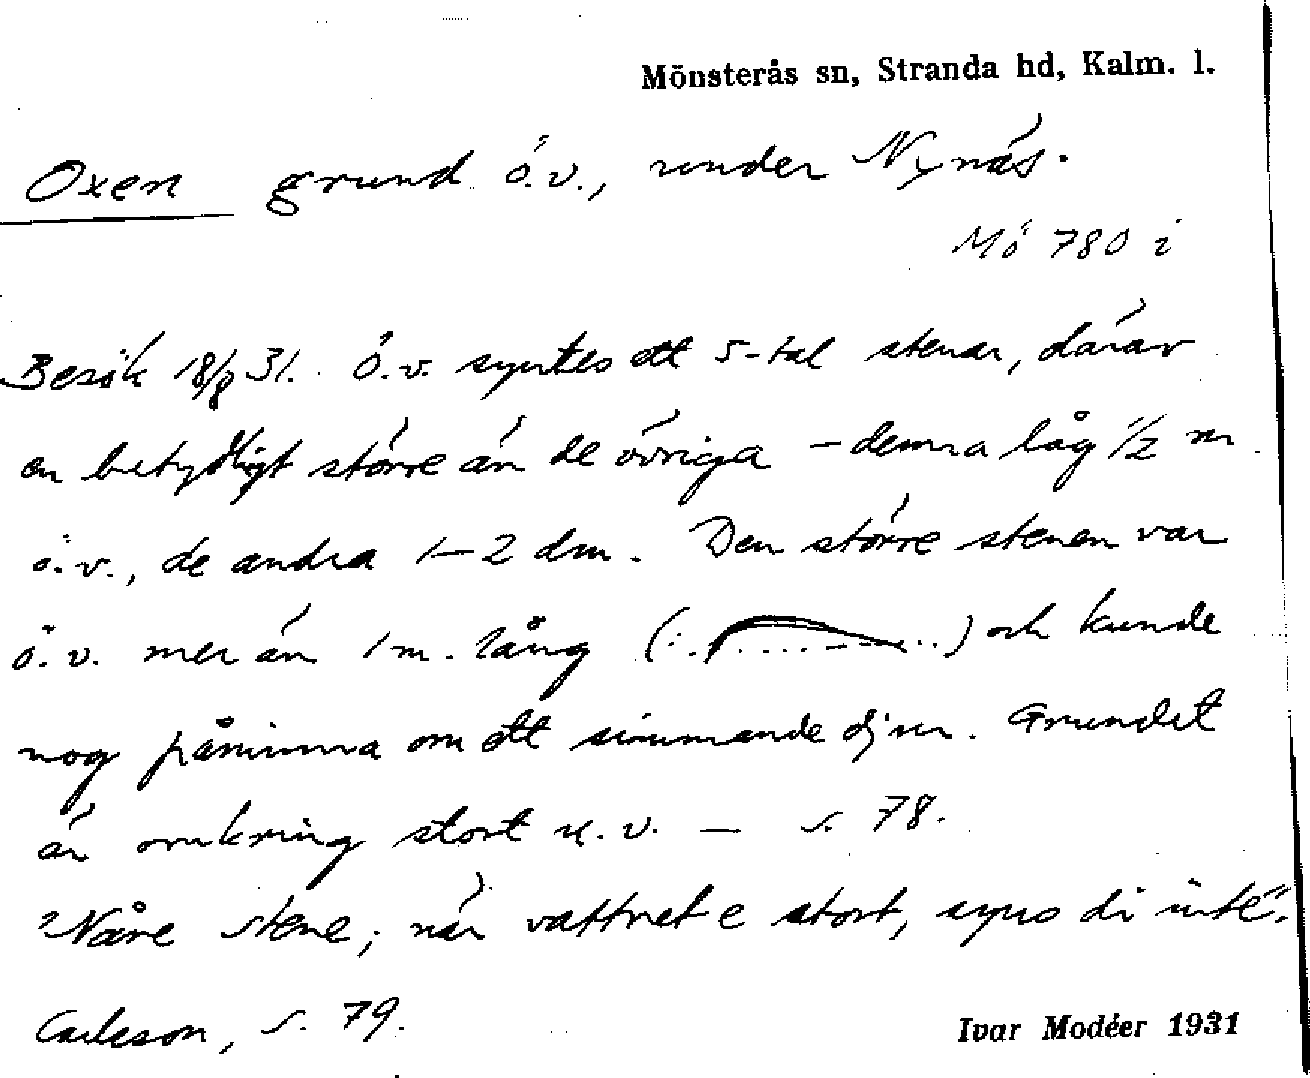 Mönsterås sn, Stranda hd, Kalm. l.
Oxen grund ö.v., under Nynäs.
Mö 780 i
Besök 18/8 31. Ö.v. syntes ett 5-tal stenar, därav
en betydligt större än de övriga – denna låg 1/2 m
ö.v., de andra 1–2 dm. Den större stenen var
ö.v. mer än 1 m. lång (...) och kunde
nog påminna om ett simmande djur. Grundet
är omkring stort u.v. — s. 78.
"Nåre stene; när vattnet e stort, syns di inte".
Carlsson, s. 79.
Ivar Modéer 1931